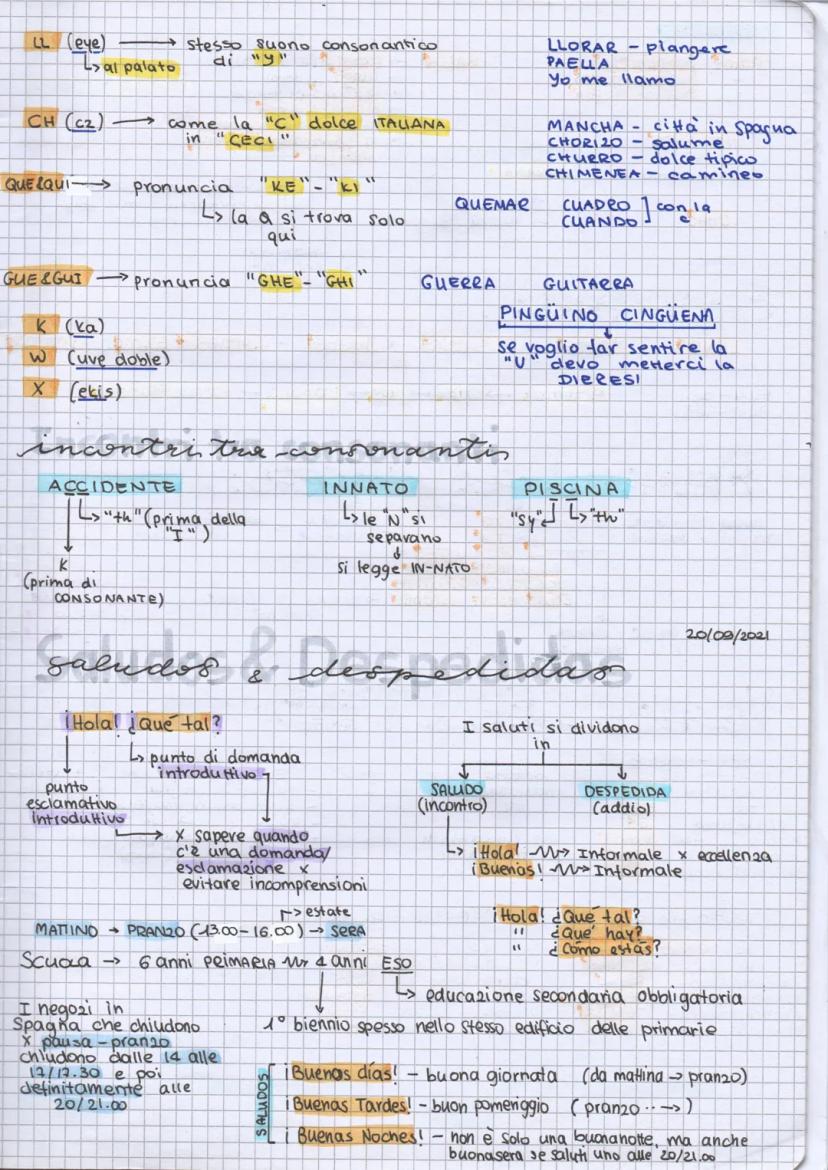 LL (eye) → stesso suono consonantico
di "y"
↳ al palato
LLORAR - piangere
PAELLA
Yo me llamo
CH (cz) → come la "C" dolce ITALIANA
in "CECI"
MANCHA - città in Spagna
CHORIZO - salume
CHURRO - dolce tipico
CHIMENEA - camineo
QUE&QUI → pronuncia "KE" - "KI"
↳ la Q si trova solo
qui
QUEMAR CUADRO ] con la
CUANDO c
GUE&GUI → pronuncia "GHE" - "GHI" GUERRA GUITARRA
PINGÜINO CINGÜENA
se voglio far sentire la
"U" devo metterci la
DIERESI
K (ka)
W (uve doble)
X (ekis)
incontri tra consonanti
ACCIDENTE
↳ "th" (prima della
"I")
K
(prima di
CONSONANTE)
INNATO
↳ le "N" si
separano
↓
si legge IN-NATO
PISCINA
"sy" ↲ ↳ "th"
20/09/2021
Saludos & Despedidas
saludos & despedidas
¡Hola! ¿Qué tal?
↳ punto di domanda
introduttivo
punto
esclamativo
introduttivo
→ x sapere quando
c'è una domanda/
esclamazione x
evitare incomprensioni
I saluti si dividono
in
SALUDO
(incontro)
DESPEDIDA
(addio)
↳ ¡Hola! → Informale x eccellenza
¡Buenas! → Informale
¡Hola! ¿Qué tal?
" ¿Qué hay?
" ¿Cómo estás?
↱ estate
MATTINO → PRANZO (13.00 - 16.00) → SERA
Scuola → 6 anni PRIMARIA → 4 anni ESO
↳ educazione secondaria obbligatoria
1° biennio spesso nello stesso edificio delle primarie
I negozi in
Spagna che chiudono
x pausa-pranzo
chiudono dalle 14 alle
17/17.30 e poi
definitamente alle
20/21.00
SALUDOS
¡Buenas días! - buona giornata (da mattina → pranzo)
¡Buenas Tardes! - buon pomeriggio (pranzo ··→)
¡Buenas Noches! - non è solo una buonanotte, ma anche
buonasera se saluti uno alle 20/21.00